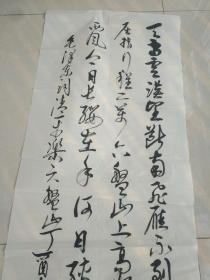 天高雲淡望断南飛雁不到
屈指行程二萬六盤山上高
西風今日長纓在手何日縛
毛澤東詞清平樂六盤山丁酉